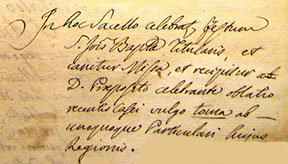 In hoc Sacello celebrat festum
S. Jois Baptæ Titularis, et
canitur Missa, et recipitur ab
D. Præposito celebrante oblatio
recentis casei vulgo toma ab
unoquoque Particulari hujus
Regionis.